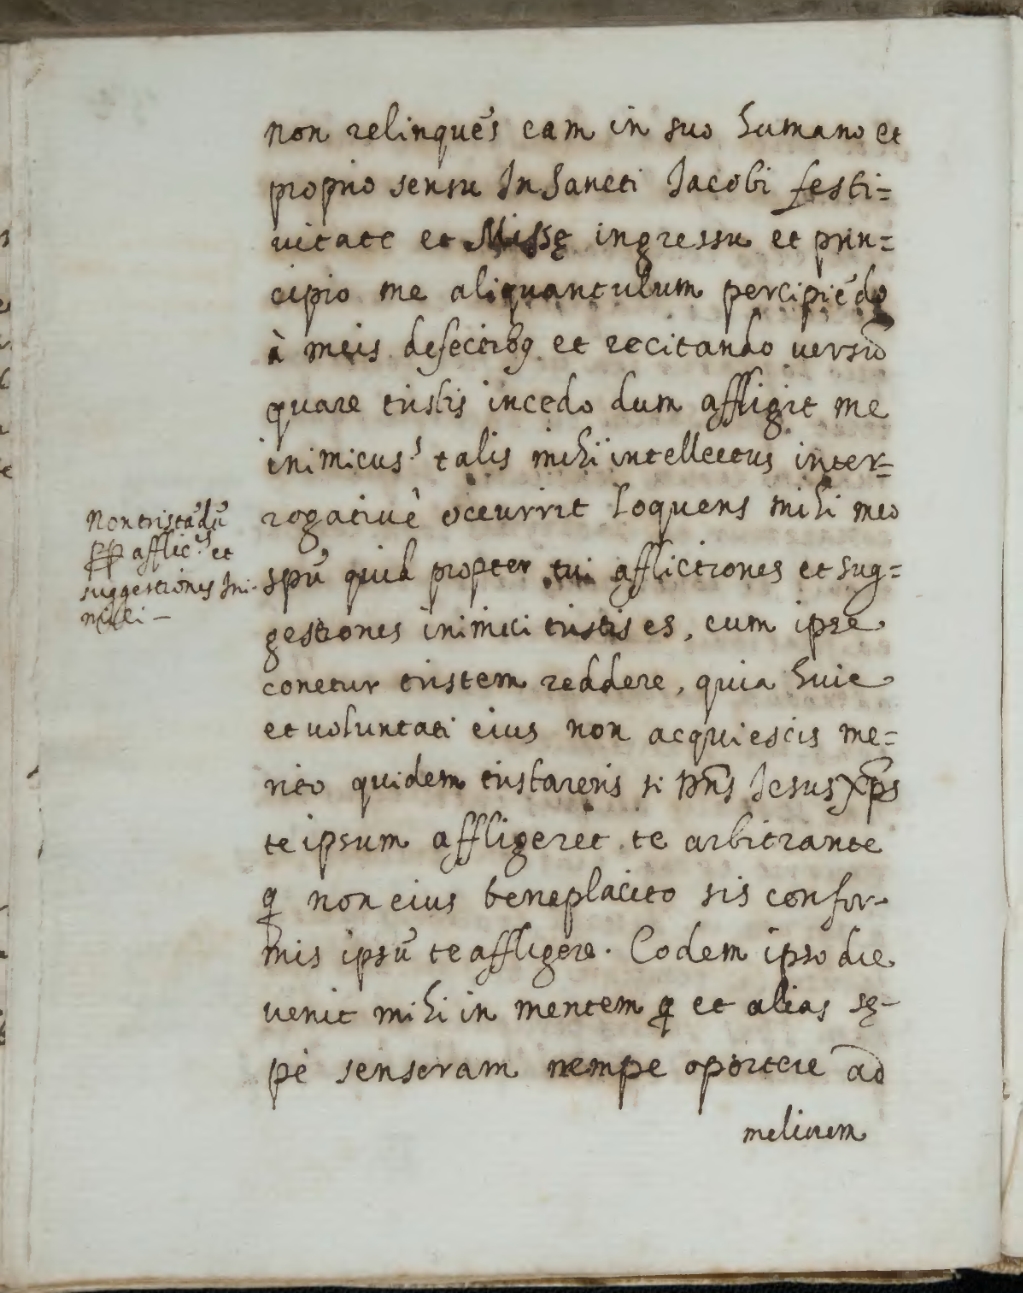 non relinquẽs eam in suo humano et
proprio sensu In Sancti Jacobi festi=
uitate et Missę ingressu et prin=
cipio me aliquantulum percipiẽdo
à meis defectibꝯ et recitando uersũ
quare tristis incedo dum affligit me
inimicus? talis mihi intellectus inter=
rogatiuè occurrit loquens mihi meo
spũ quid propter tui afflictiones et sug=
gestiones inimici tristis es, cum ipse
conetur tristem reddere, quia huic
et uoluntati eius non acquiescis me=
rito quidem tristareris si Dñs Jesus Xp̃s
te ipsum affligeret te arbitrante
ꝙ non eius beneplacito sis confor-
mis ipsũ te affligere. Eodem ipso die
uenit mihi in mentem ꝙ et alias sę-
pè senseram nempe oportere ad
meliorem
Non tristãdũ
ꝓꝓ afflic.ˢ et
suggestiones Ini-
mici -